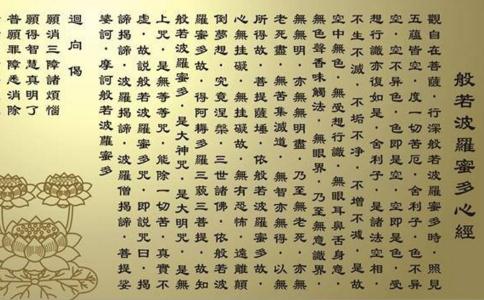 般若波羅蜜多心經
觀自在菩薩·行深般若波羅蜜多時·照見
五蘊皆空·度一切苦厄·舍利子·色不異
空·空不異色·色即是空·空即是色·受
想行識亦復如是·舍利子·是諸法空相·
不生不滅·不垢不净·不增不減·是故
空中無色·無受想行識·無眼耳鼻舌身意·
無色聲香味觸法·無眼界·乃至無意識界·
無無明·亦無無明盡·乃至無老死·亦無
老死盡·無苦集滅道·無智亦無得·以無
所得故·菩提薩埵·依般若波羅蜜多故·
心無挂礙·無挂礙故·無有恐怖·遠離顛
倒夢想·究竟涅槃·三世諸佛·依般若波
羅蜜多故·得阿耨多羅三藐三菩提·故知
般若波羅蜜多·是大神咒·是大明咒·是無
上咒·是無等等咒·能除一切苦·真實不
虛·故説般若波羅蜜多咒·即説咒曰·揭
諦揭諦·波羅揭諦·波羅僧揭諦·菩提娑
婆訶·摩訶般若波羅蜜多
迴向偈
願消三障諸煩惱
願得智慧真明了
普願罪障悉消除